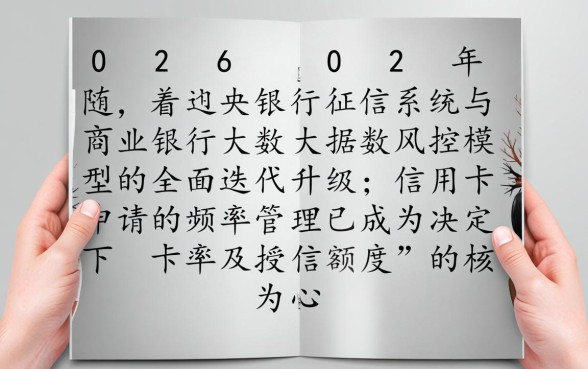 026 02年
随，着边央银行征信系统与
商业银行大数大据数风控模
型的全面迭代升级；信用卡
申请的频率管理已成为决定
下 卡率及授信额度”的核
为心